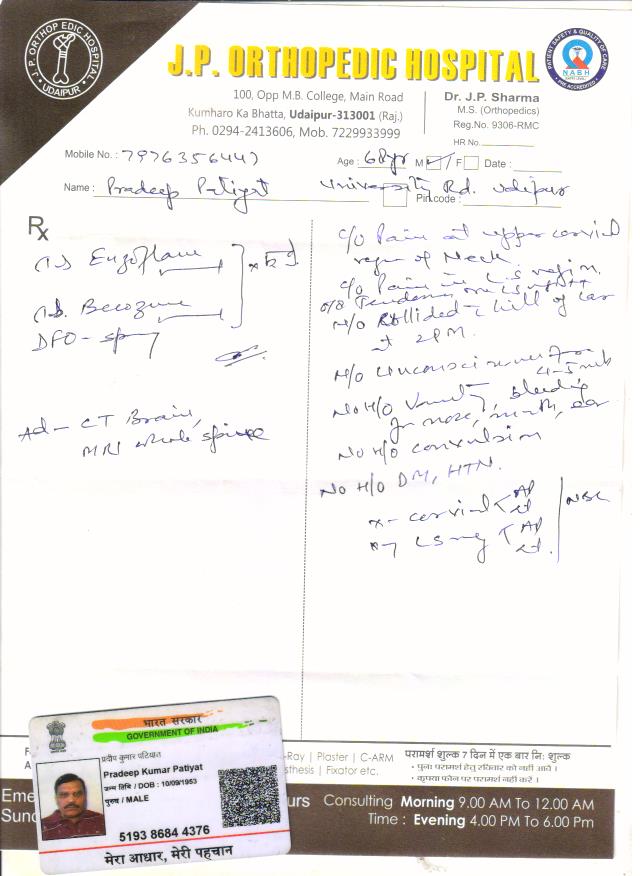 J.P. ORTHOPEDIC HOSPITAL
UDAIPUR
J.P. ORTHOPEDIC HOSPITAL
PATIENT SAFETY & QUALITY OF CARE
NABH
PRE ACCREDITED
100, Opp M.B. College, Main Road
Kumharo Ka Bhatta, Udaipur-313001 (Raj.)
Ph. 0294-2413606, Mob. 7229933999
Dr. J.P. Sharma
M.S. (Orthopedics)
Reg.No. 9306-RMC
HR No.
Mobile No. : 7976356447
Age : 68yr M ✓ F Date :
Name : Pradeep Patiyat University Rd. Udipur
Pin code :
Rx
Enzoflam
Becozyme
DFO - sp
Ad - CT Brain,
MRI whole spine
c/o Pain at upper cervical
region of Neck
c/o Pain in LS region
o/e Tenderness
H/o Collided
at 2 PM.
H/o unconsciousness for
4-5 mb
No H/o Vomiting, bleeding
from nose, mouth, ear
No H/o convulsion
No H/o DM, HTN.
x - cervical AP
Lt
LS AP
Lt.
X-Ray | Plaster | C-ARM
Fixator etc.
परामर्श शुल्क 7 दिन में एक बार नि: शुल्क
• पुनः परामर्श हेतु रविवार को नहीं आवे ।
• कृपया फोन पर परामर्श नहीं करें ।
Eme
Sund
Consulting Morning 9.00 AM To 12.00 AM
Time : Evening 4.00 PM To 6.00 Pm
भारत सरकार
GOVERNMENT OF INDIA
प्रदीप कुमार पटियात
Pradeep Kumar Patiyat
जन्म तिथि / DOB : 10/09/1953
पुरुष / MALE
5193 8684 4376
मेरा आधार, मेरी पहचान